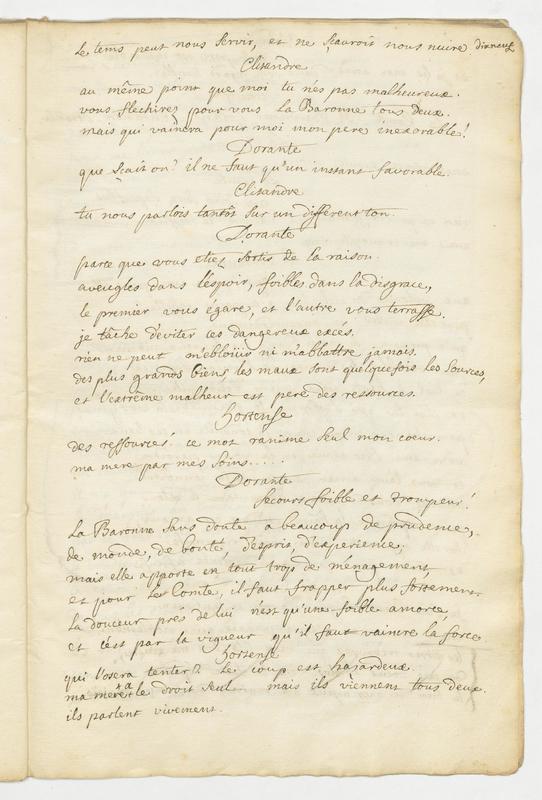 le tems peut nous servir, et ne sçauroit nous nuire dixneuf
Clitandre
au même point que moi tu n'es pas malheureux.
vous flechirez pour vous la Baronne tous deux.
mais qui vaincra pour moi mon pere inexorable!
Dorante
que sçait on? il ne faut qu'un instant favorable.
Clitandre
tu nous parlois tantôt sur un different ton.
Dorante
parce que vous etiez sortis de la raison.
aveugles dans l'espoir, foibles dans la disgrace,
le premier vous égare, et l'autre vous terrasse.
je tâche d'éviter ces dangereux excés.
rien ne peut m'eblouir ni m'abbattre jamais.
des plus grands biens les maux sont quelquefois les sources,
et l'extrême malheur est pere des ressources.
hortense
des ressources! ce mot ranime seul mon coeur.
ma mere par mes soins.....
Dorante
secours foible et trompeur!
La Baronne sans doute a beaucoup de prudence,
de monde, de bonté, d'esprit, d'experience;
mais elle apporte en tout trop de menagement
et pour le Comte, il faut frapper plus fortement.
la douceur prés de lui n'est qu'une foible amorce
et c'est par la vigueur qu'il faut vaincre la force
hortense
qui l'osera tenter? le coup est hazardeux.
ma mere a le droit seul mais ils viennent tous deux.
ils parlent vivement.